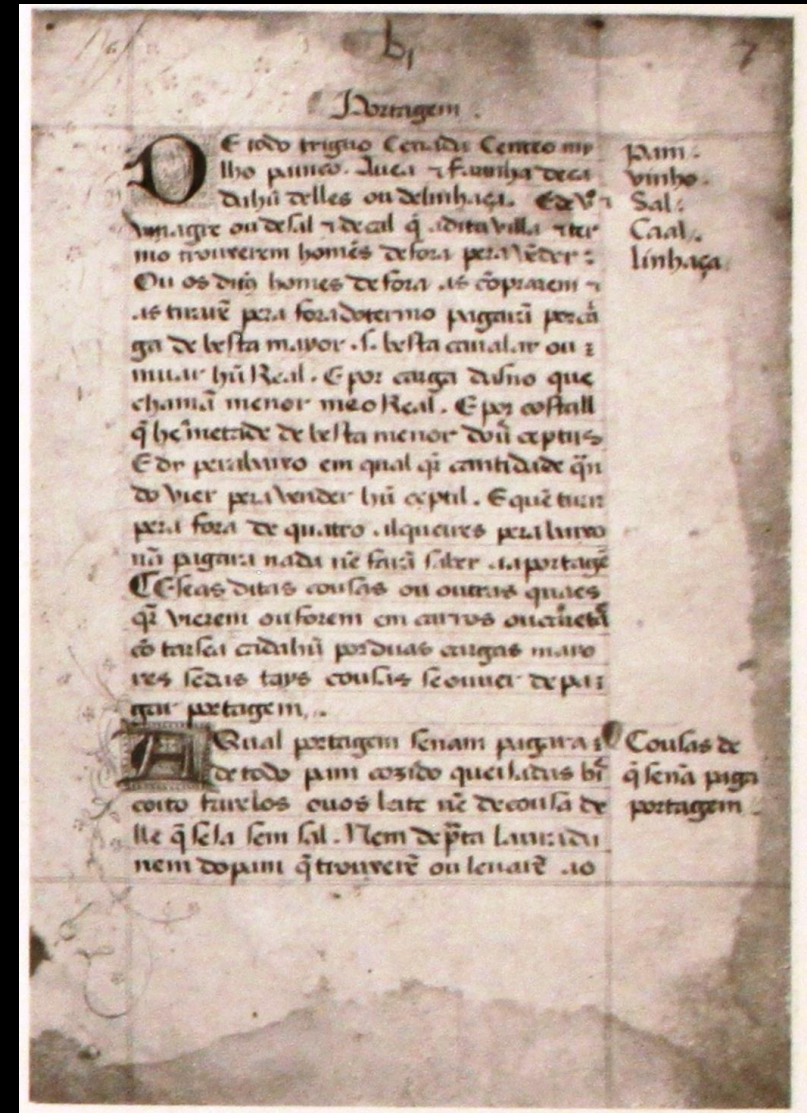 b1
7
Portagem.
DE todo triguo Cevada Centeo my
lho painço. Avea ⁊ farinha deca
dahũ delles ou delinhaça. E de vº ⁊
vinagre ou de sal ⁊ de cal q̃ adita villa ⁊ ter
mo trouverem homẽs de fora pera vẽder:
Ou os ditos homes de fora as cõprarem ⁊
as tirarẽ pera fora do termo pagarã por car
ga de besta mayor .s. besta cavalar ou :
muar hũ Real. E por carga dasno que
chamã menor meo Real. E por costall
q̃ he metade de besta menor dous ceptis
E dy pera baixo em qual qr̃ cantidade q̃n
do vier pera vender hũ ceptil. E quẽ tirar
pera fora de quatro alqueires pera baixo
nã pagara nada nẽ farã saber aa portagẽ
¶ E se as ditas cousas ou outras quaes
qr̃ vierem ou forem em carros ou carretas
cõtarsea cadahũ por duas cargas mayo
res se das tays cousas se ouver de pa:
gar portagem.
A Qual portagem se nam pagara :
de todo pam cozido queijadas bis
coito farelos ovos leite nẽ de cousa de
lle q̃ seja sem sal. Nem de prata lavrada
nem do pam q̃ trouxerẽ ou levarẽ ao
pam.
vinho.
Sal.
Caal.
linhaça.
Cousas de
q̃ se nã paga
portagem.